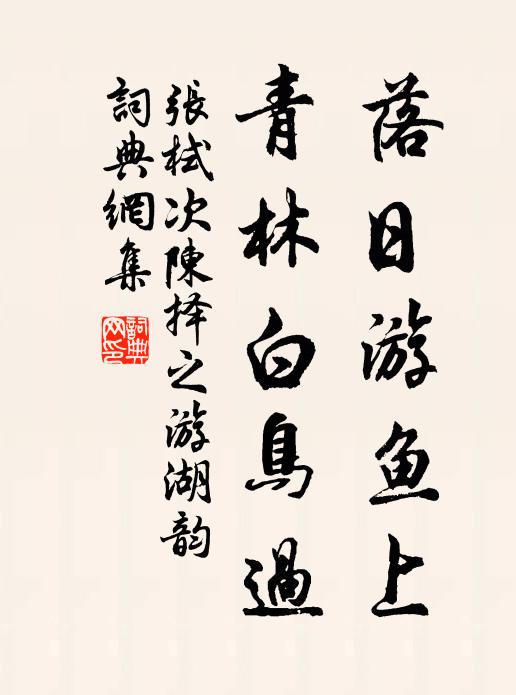 落日游鱼上
青林白鳥過
張栻次陳择之游湖韵
詞典網集
詞典网印